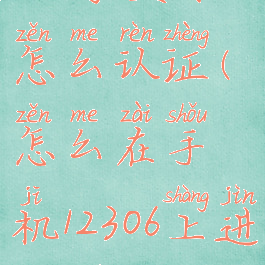 zěn me rèn zhèng
怎么认证(
zěn me zài shǒu
怎么在手
jī shàng jìn
机12306上进